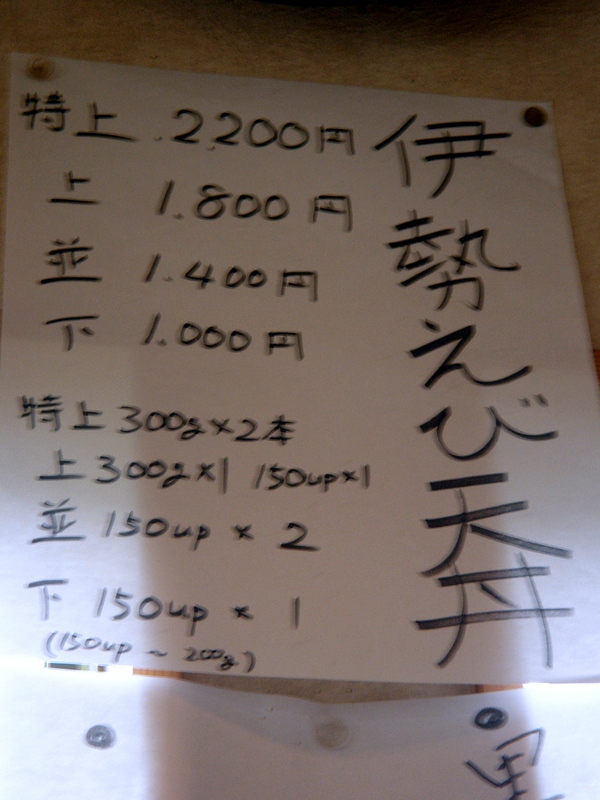 伊勢えび天丼
特上 2,200円
上 1.800円
並 1.400円
下 1.000円
特上300g×2本
上300g×1 150up×1
並150up×2
下150up×1
(150up~200g)